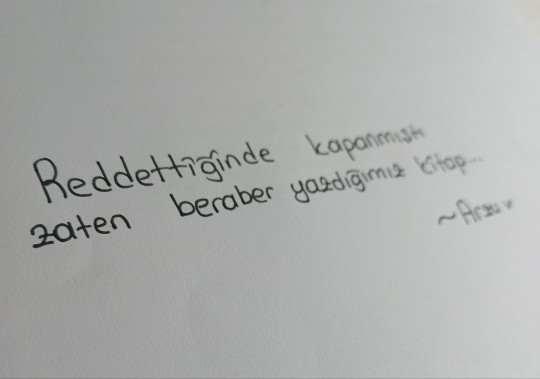 Reddettiğinde kapanmıştı
zaten beraber yazdığımız kitap...
~Arzu